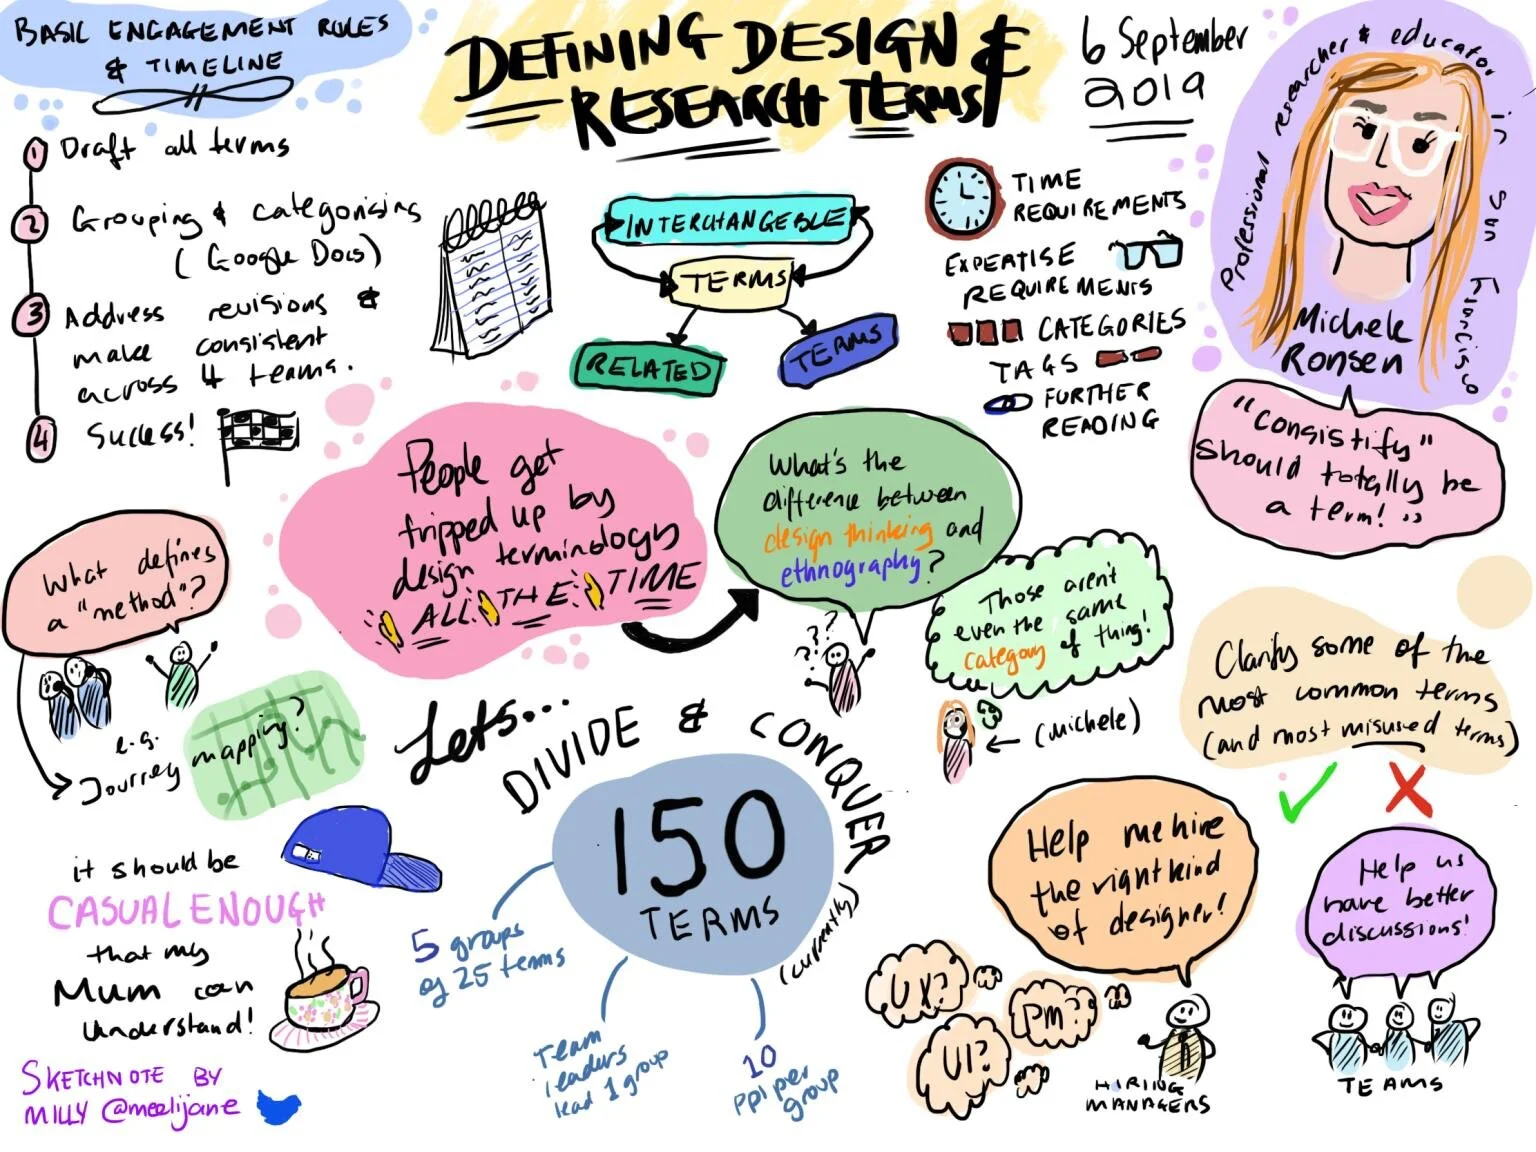 BASIC ENGAGEMENT RULES
& TIMELINE
1 Draft all terms
2 Grouping & categorising
(Google Docs)
3 Address revisions &
make consistent
across 4 teams.
4 Success!
DEFINING DESIGN &
RESEARCH TERMS
6 September
2019
INTERCHANGEABLE
TERMS
RELATED
TERMS
TIME
REQUIREMENTS
EXPERTISE
REQUIREMENTS
CATEGORIES
TAGS
FURTHER
READING
Professional researcher & educator in San Francisco
Michele
Ronsen
"consistify"
should totally be
a term!"
People get
tripped up by
design terminology
ALL THE TIME
What's the
difference between
design thinking and
ethnography?
???
Those aren't
even the same
category of thing!
(Michele)
What defines
a "method"?
e.g.
Journey mapping?
Clarify some of the
most common terms
(and most misused terms)
Let's...
DIVIDE & CONQUER
150
TERMS
(currently)
5 groups
of 25 terms
Team
leaders
lead 1 group
10
ppl per
group
it should be
CASUAL ENOUGH
that my
Mum can
understand!
Help me hire
the right kind
of designer!
UX?
PM?
UI?
HIRING
MANAGERS
Help us
have better
discussions!
TEAMS
SKETCHNOTE BY
MILLY @meelijane